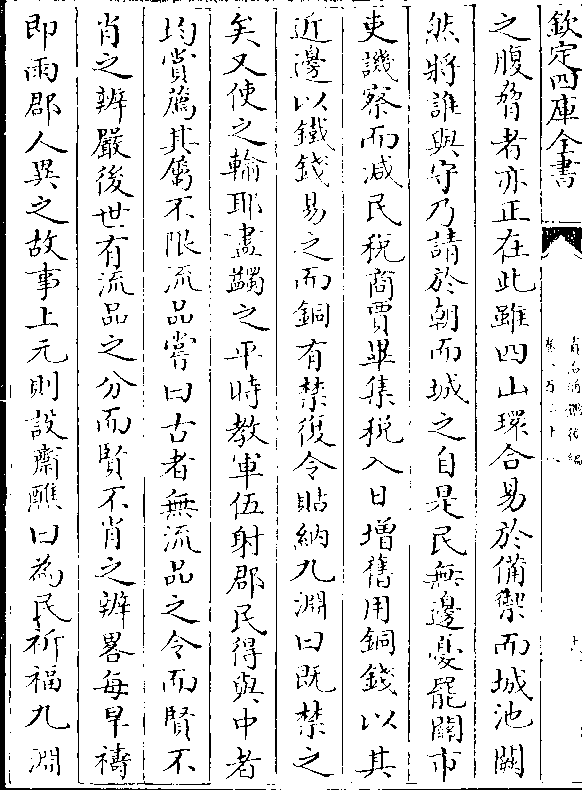 欽定四庫全書
之腹脅者亦正在此雖四山環合易於備禦而城池闕
然將誰與守乃請於朝而城之自是民無邊憂罷關市
吏譏察而減民稅商賈畢集稅入日增舊用銅錢以其
近邊以鐵錢易之而銅有禁復令貼納九淵曰既禁之
矣又使之輸耶盡蠲之平時教軍伍射郡民得與中者
均賞薦其屬不限流品嘗曰古者無流品之令而賢不
肖之辨嚴後世有流品之分而賢不肖之辨畧每旱禱
即雨郡人異之故事上元則設齋醮曰為民祈福九淵